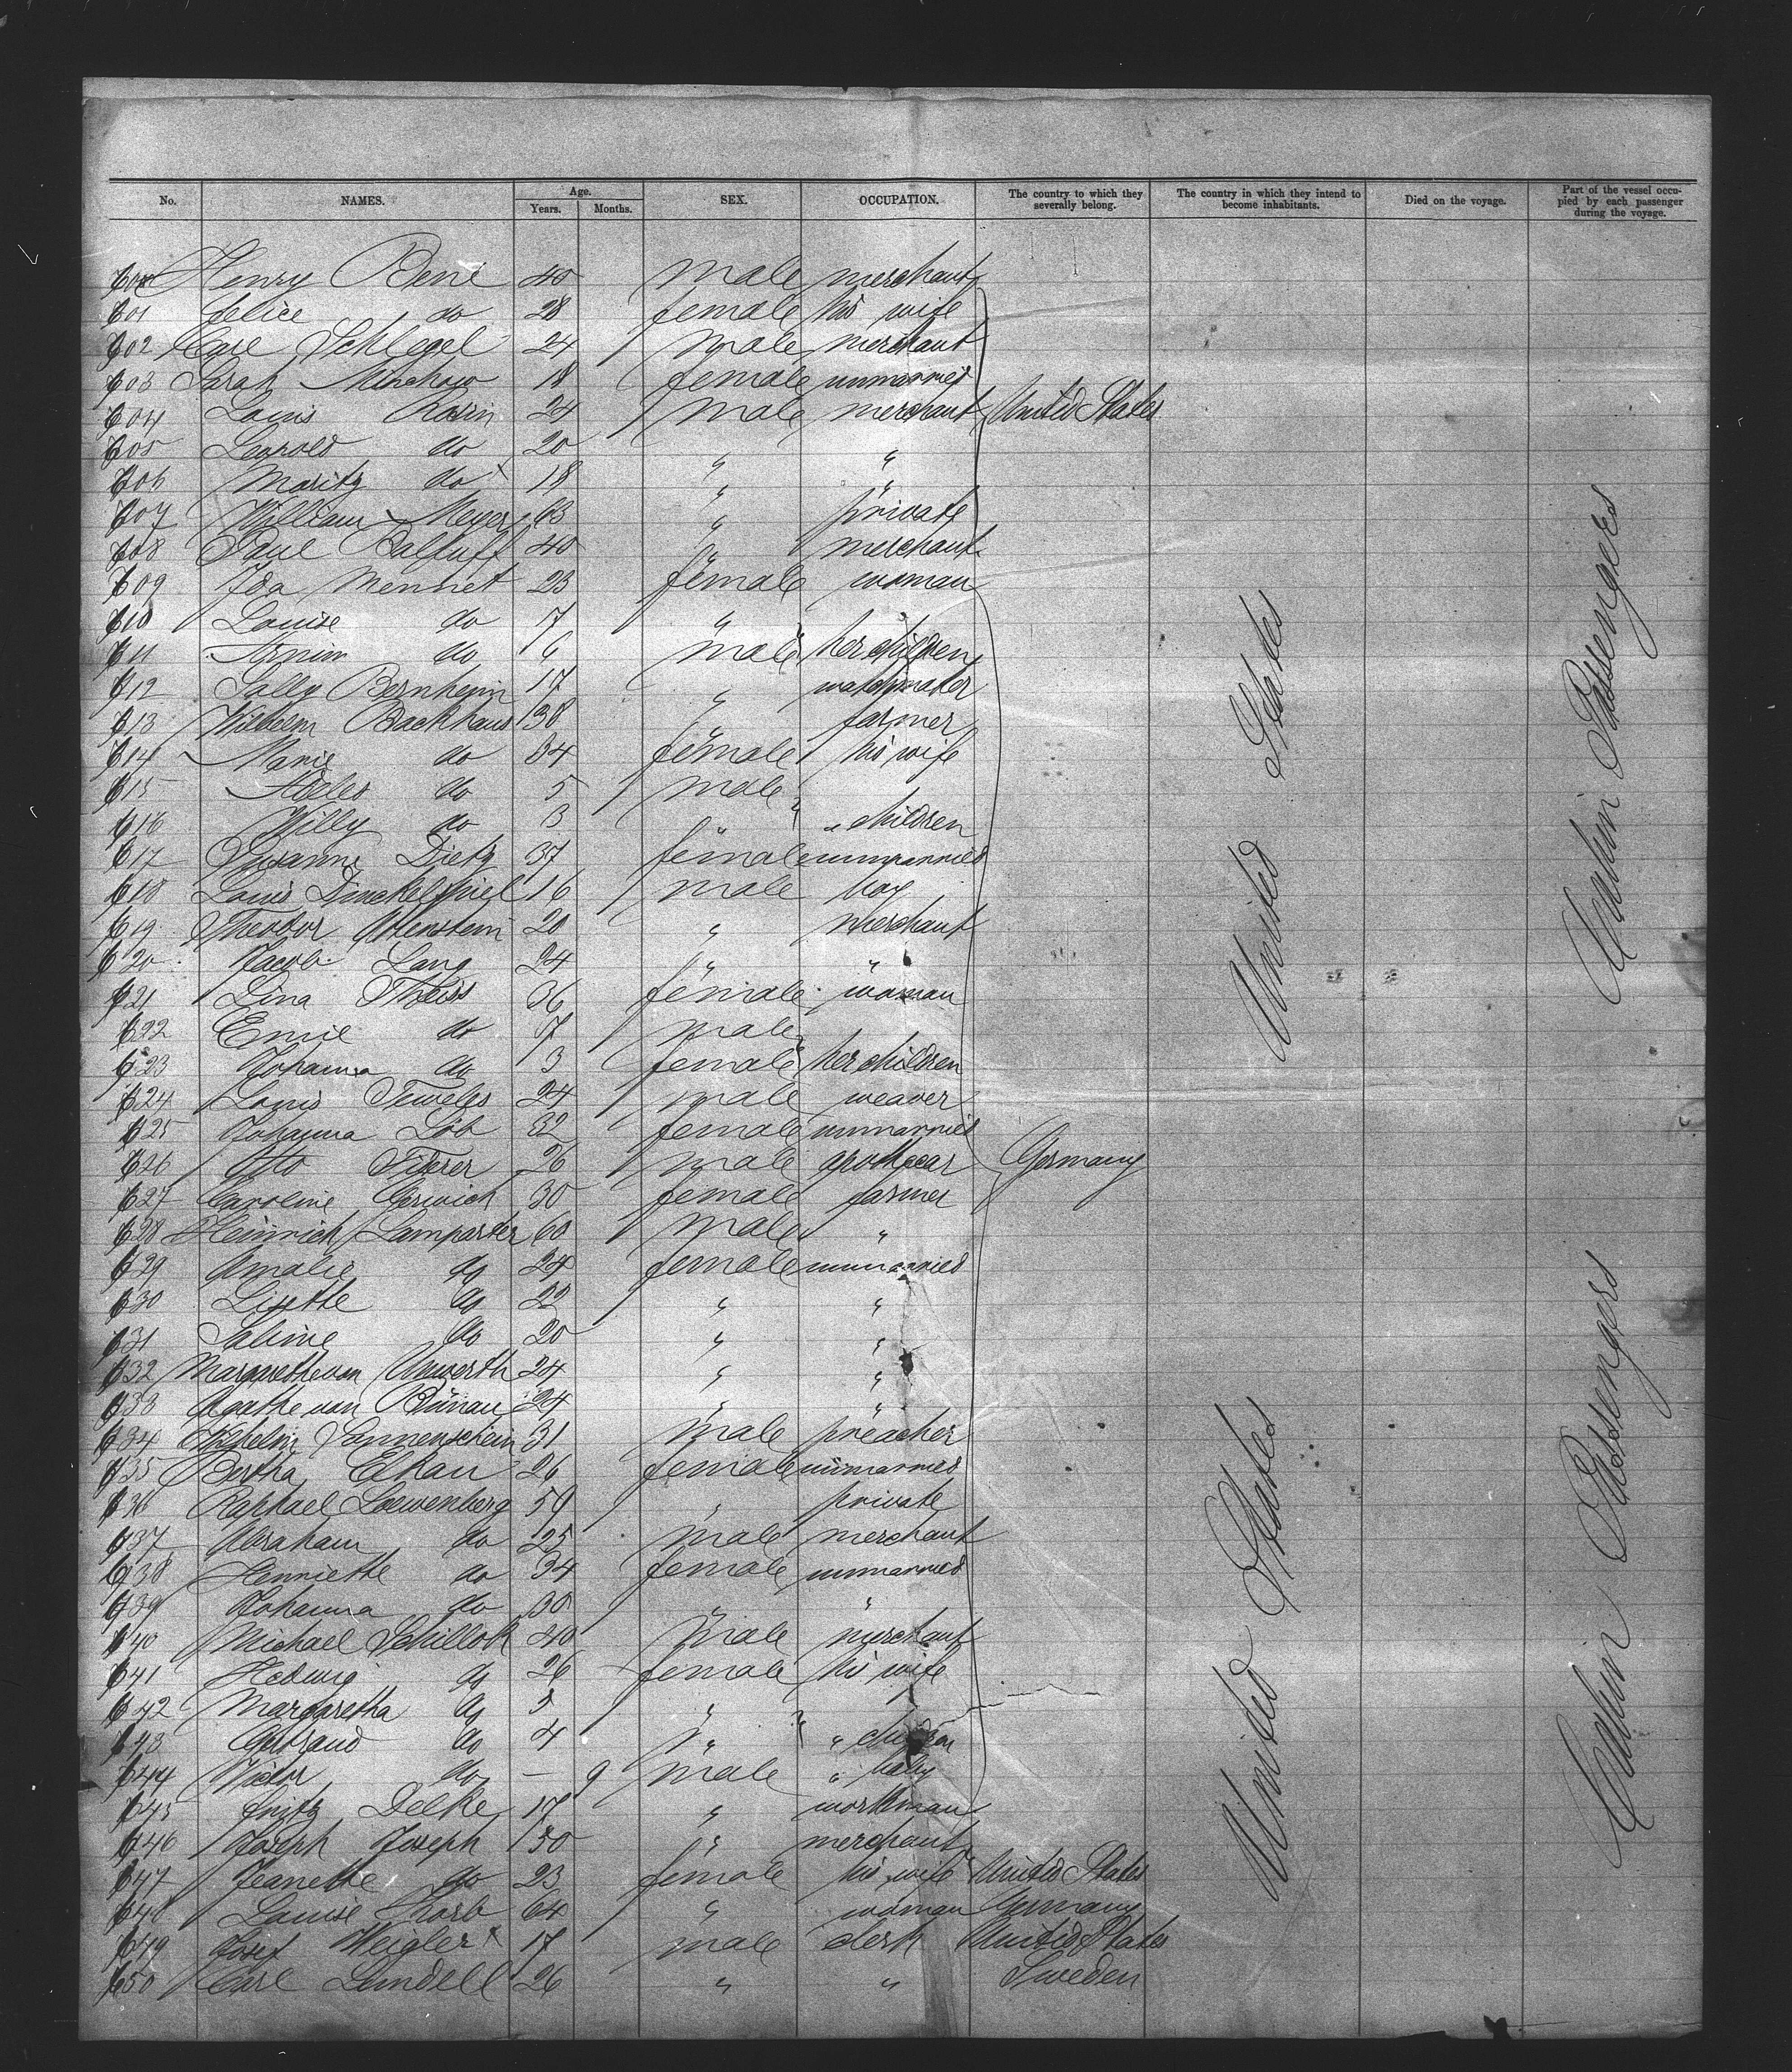 No. NAMES. Age. Years. Months. SEX. OCCUPATION. The country to which they severally belong. The country in which they intend to become inhabitants. Died on the voyage. Part of the vessel occupied by each passenger during the voyage.
600 Henry Bene 40 male merchant
601 Felice do 28 female his wife
602 Carl Schlegel 24 male merchant
603 Sarah 18 female unmarried
604 Louis Rosin 24 male merchant United States
605 Leopold do 20 " "
606 Moritz do 18 " "
607 William Meyer 63 " private
608 Paul Balluff 40 " merchant
609 Ida Mennet 23 female woman
610 Louise do 7 "
611 Armin do 6 male her children
612 Sally Bernheim 17 " watchmaker
613 Wilhelm Backhaus 38 " farmer
614 Marie do 34 female his wife
615 do 5 male
616 Willy do 3 " " children
617 Susanne Dietz 37 female unmarried
618 Louis Dinckelspiel 16 male boy
619 Theodor 20 " merchant
620 Jacob Lang 24 " "
621 Lina Theiss 36 female woman
622 Emil do 7 male
623 Johanna do 3 female her children
624 Louis Teweles 24 male weaver
625 Johanna Löb 32 female unmarried
626 Otto 26 male apothecar Germany
627 Caroline Gerwich 30 female farmer
628 Heinrich Lamparter 60 male "
629 Amalie do 24 female unmarried
630 Lisette do 22 " "
631 Sabine do 20 " "
632 Margarethe von Unwerth 24 " "
633 Agathe von Bünau 24 " "
634 Wilhelm Sonnenschein 31 male preacher
635 Bertha Elkau 26 female unmarried
636 Raphael Loewenberg 59 " private
637 Abraham do 25 male merchant
638 Henriette do 34 female unmarried
639 Johanna do 30 " "
640 Michael Schillok 40 male merchant
641 Hedwig do 26 female his wife
642 Margaretha do 5 "
643 do 4 " " children
644 Victor do – 9 male " baby
645 Fritz Delke 17 " workman
646 Joseph Joseph 30 " merchant
647 Jeanette do 23 female his wife United States
648 Louise 64 " woman Germany
649 Josef Weigler 17 male clerk United States
650 Carl Lundell 26 " " Sweden
United States
Cabin Passengers
United States
Cabin Passengers